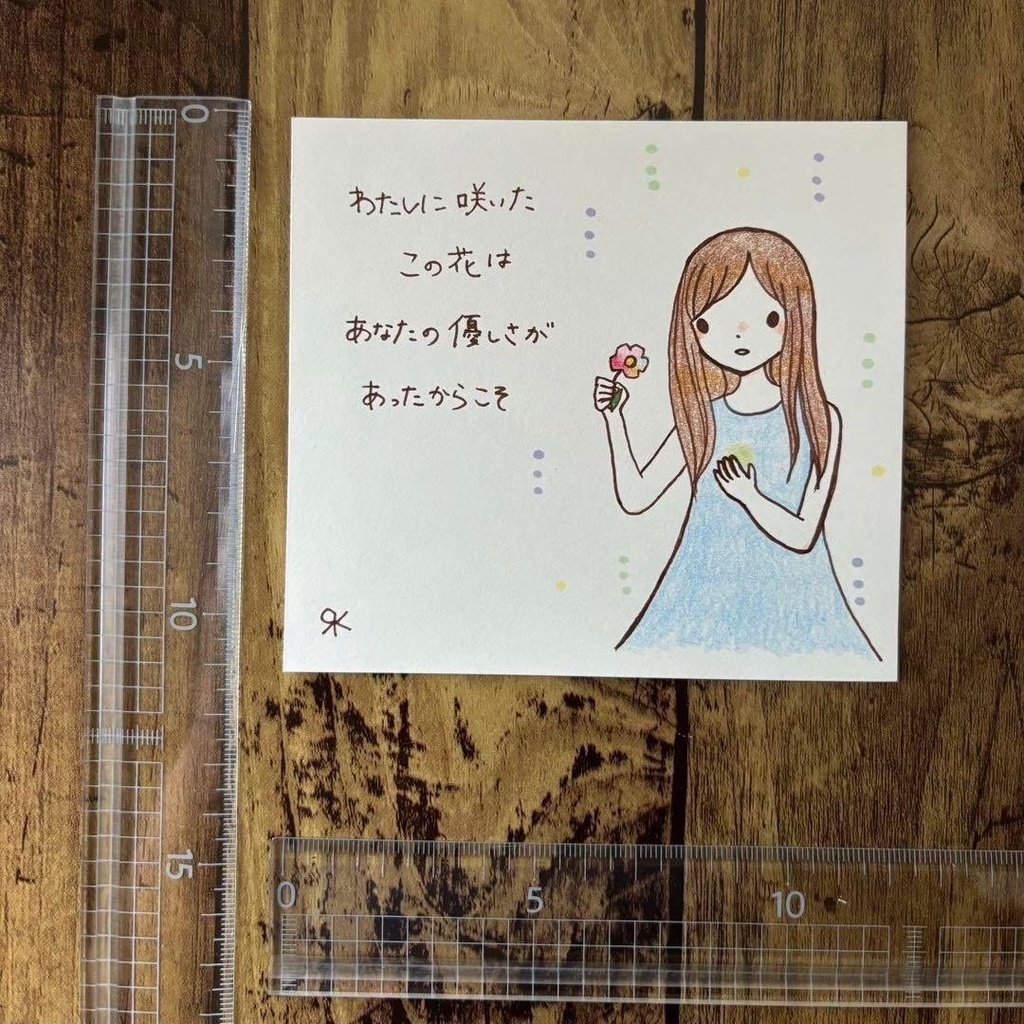 わたしに咲いた
この花は
あなたの優しさが
あったからこそ
0
5
10
15
0
5
10